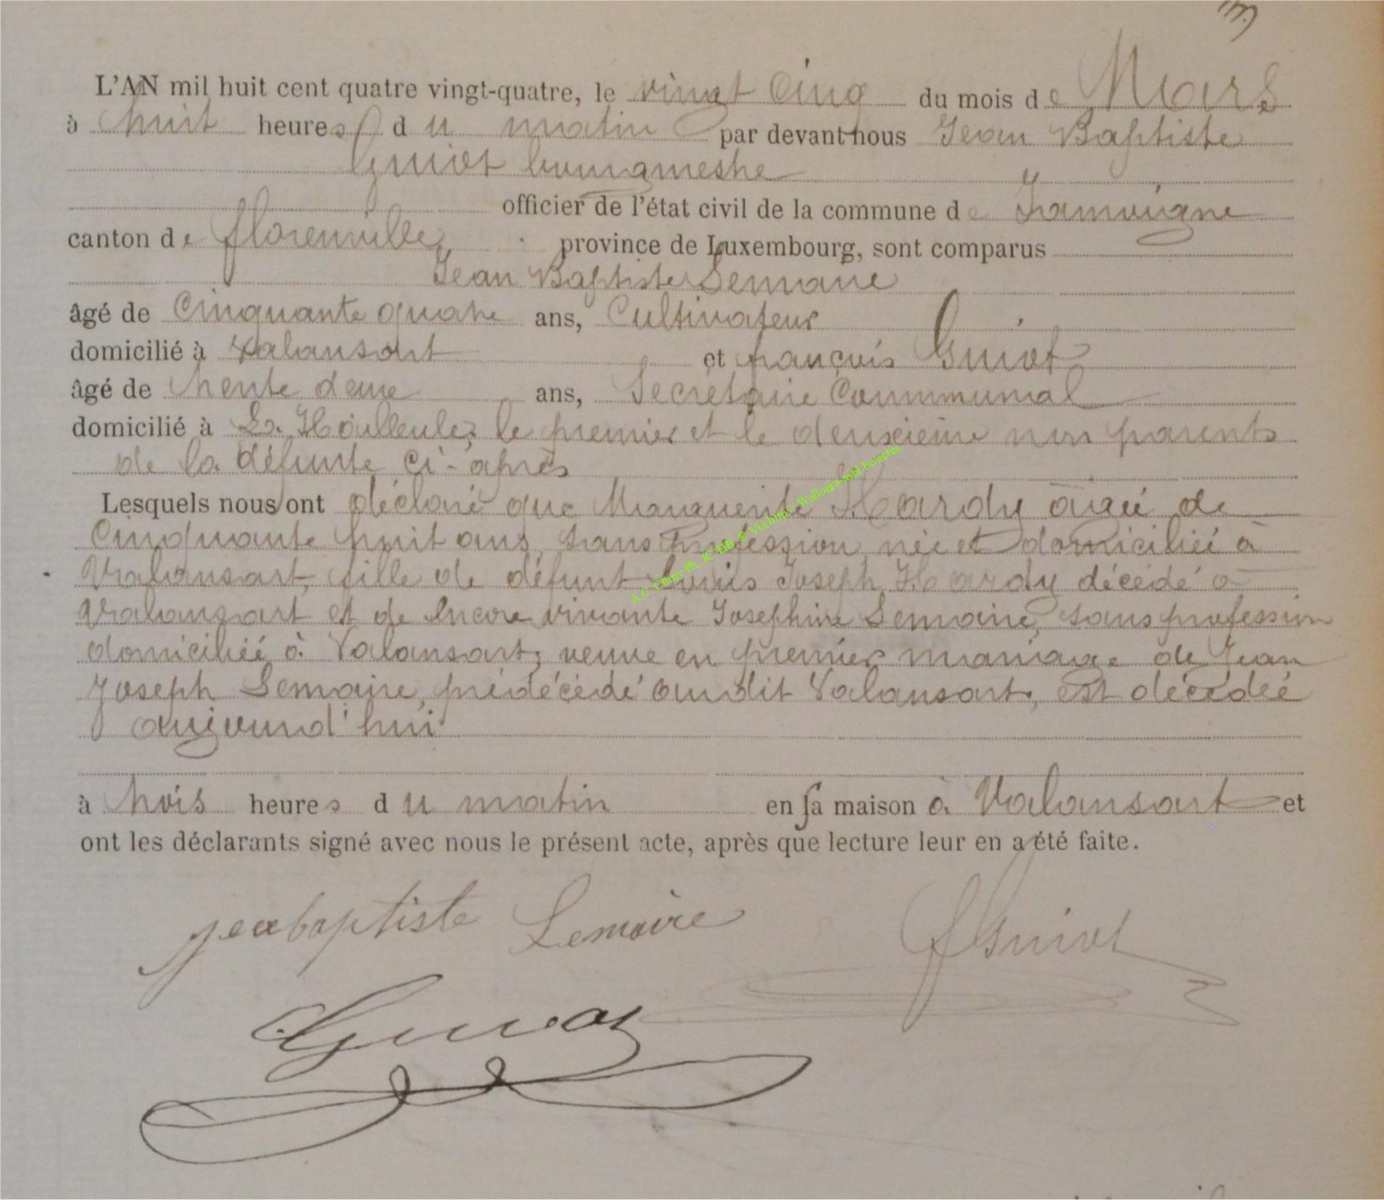 L'AN mil huit cent quatre vingt-quatre, le vingt Cinq du mois de Mars
à huit heures du matin par devant nous Jean Baptiste
Guiot bourgmestre
officier de l'état civil de la commune de Jamoigne
canton de florenville province de Luxembourg, sont comparus
Jean Baptiste Lemaire
âgé de Cinquante quatre ans, Cultivateur
domicilié à Valansart et françois Guiot
âgé de trente deux ans, Secretaire Communal
domicilié à La Hailleule, le premier et le deuxieme non parents
de la défunte ci-après
Lesquels nous ont déclaré que Marguerite Hardy agée de
Cinquante huit ans, sans profession née et domiciliée à
Valansart, fille de défunt Louis Joseph Hardy décédé à
Valansart et de Encore vivante Josephine Lemaire, sans profession
domiciliée à Valansart, veuve en premier mariage de Jean
Joseph Lemaire prédécédé audit Valansart, est décédée
aujourd'hui
à trois heures du matin en sa maison à Valansart et
ont les déclarants signé avec nous le présent acte, après que lecture leur en a été faite.
jeabaptiste Lemaire FGuiot
Guiot